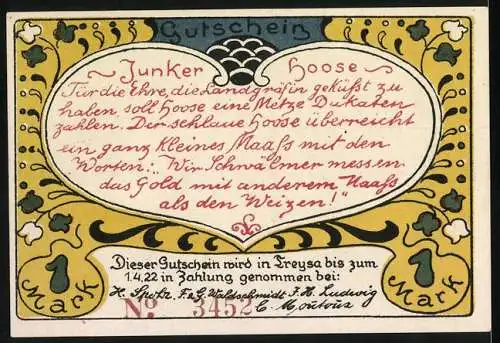 Gutschein
Junker Hoose
Für die Ehre, die Landgräfin geküßt zu
haben, soll Hoose eine Metze Dukaten
zahlen. Der schlaue Hoose überreicht
ein ganz kleines Maaß mit den
Worten: „Wir Schwälmer messen
das Gold mit anderem Maaß
als den Weizen!"
Dieser Gutschein wird in Treysa bis zum
1.4.22 in Zahlung genommen bei:
H. Spohr, F. & G. Waldschmidt J. H. Ludwig
No. 3452 C. Moutoux
1 Mark
1 Mark